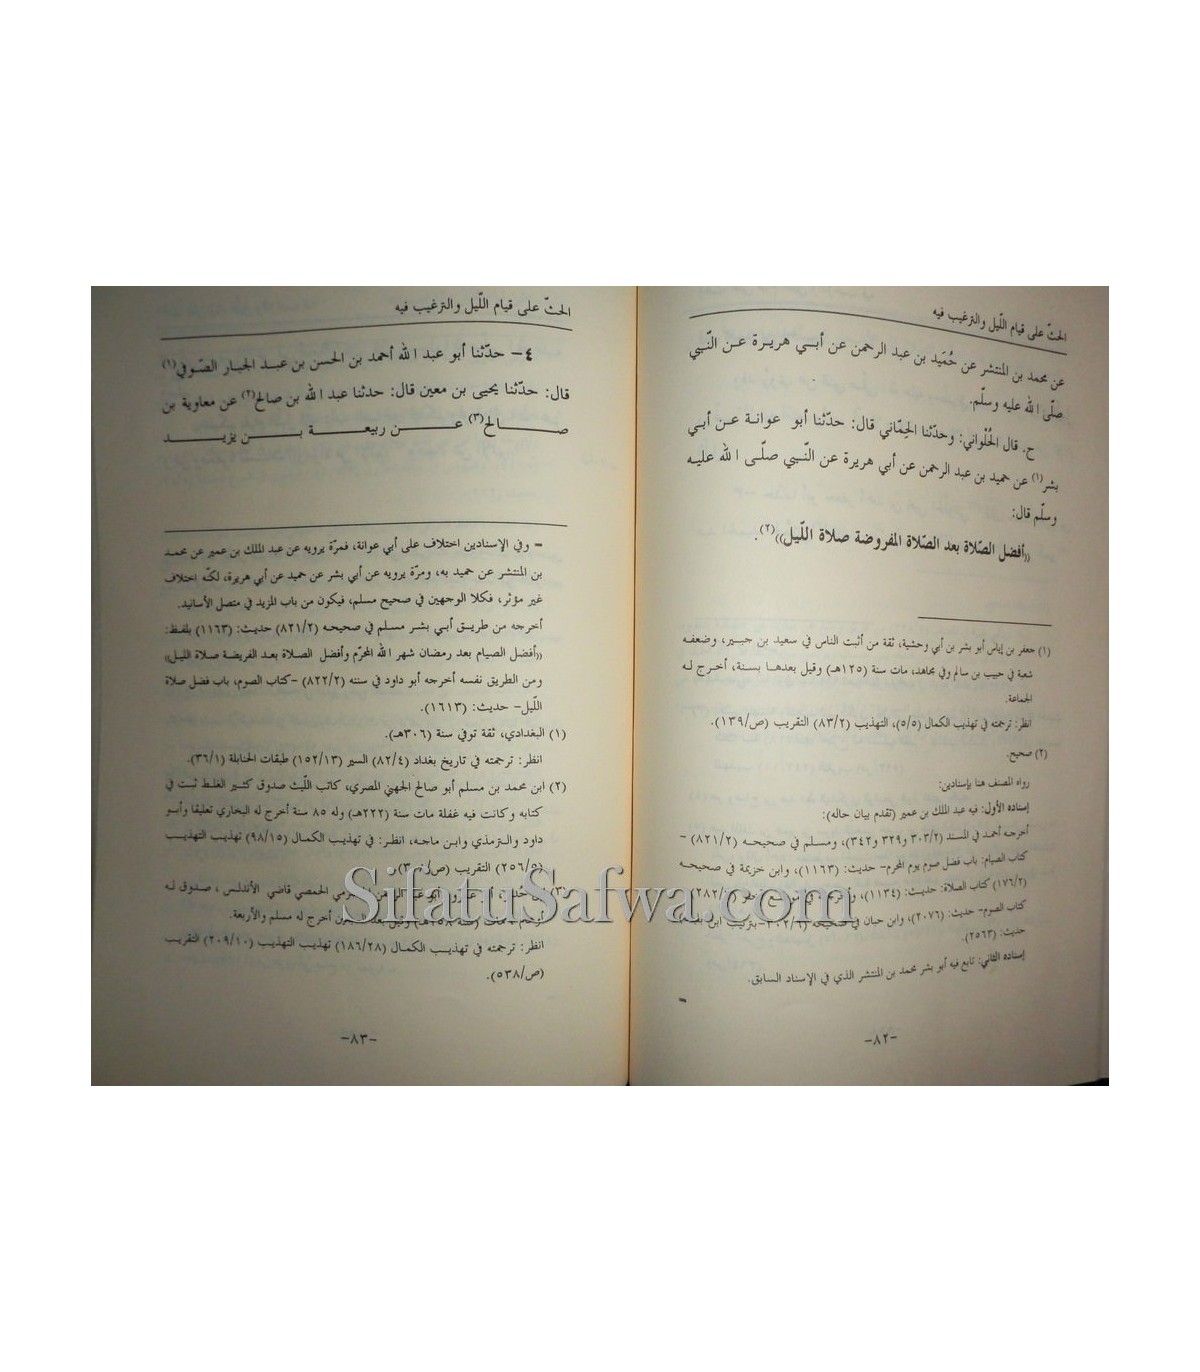 الحثّ على قيام اللّيل والترغيب فيه
عن محمد بن المنتشر عن حُمَيد بن عبد الرحمن عن أبي هريرة عن النّبي
صلّى الله عليه وسلّم.
ح. قال الحُلْواني: وحدّثنا الحِمّاني قال: حدّثنا أبو عوانة عن أبي
بشر(١) عن حميد بن عبد الرحمن عن أبي هريرة عن النّبي صلّى الله عليه
وسلّم قال:
«أفضل الصّلاة بعد الصّلاة المفروضة صلاة اللّيل»(٢).
(١) جعفر بن إياس أبو بشر بن أبي وحشية، ثقة من أثبت الناس في سعيد بن جبير، وضعفه
شعبة في حبيب بن سالم وفي مجاهد، مات سنة (١٢٥هـ) وقيل بعدها بسنة، أخرج له
الجماعة.
انظر: ترجمته في تهذيب الكمال (٥/٥)، التهذيب (٨٣/٢) التقريب (ص/١٣٩).
(٢) صحيح.
رواه المصنف هنا بإسنادين:
إسناده الأول: فيه عبد الملك بن عمير (تقدم بيان حاله):
أخرجه أحمد في المسند (٣٠٣/٢ و٣٢٩ و٣٤٢)، ومسلم في صحيحه (٨٢١/٢) -
كتاب الصيام: باب فضل صوم يوم المحرم- حديث: (١١٦٣)، وابن خزيمة في صحيحه
(١٧٦/٢) كتاب الصلاة: حديث: (١١٣٤)،
كتاب الصوم- حديث: (٢٠٧٦)، وابن حبان في صحيحه
حديث: (٢٥٦٣).
إسناده الثاني: تابع فيه أبو بشر محمد بن المنتشر الذي في الإسناد السابق.
-٨٢-
الحثّ على قيام اللّيل والترغيب فيه
٤- حدّثنا أبو عبد الله أحمد بن الحسن بن عبد الجبار الصّوفي(١)
قال: حدّثنا يحيى بن معين قال: حدثنا عبد الله بن صالح(٢) عن معاوية بن
صالح(٣) عن ربيعة بن يزيد
= وفي الإسنادين اختلاف على أبي عوانة، فمرّة يرويه عن عبد الملك بن عمير عن محمد
بن المنتشر عن حميد به، ومرّة يرويه عن أبي بشر عن حميد عن أبي هريرة، لكنّه اختلاف
غير مؤثر، فكلا الوجهين في صحيح مسلم، فيكون من باب المزيد في متصل الأسانيد.
أخرجه من طريق أبي بشر مسلم في صحيحه (٨٢١/٢) حديث: (١١٦٣) بلفظ:
«أفضل الصيام بعد رمضان شهر الله المحرّم وأفضل الصلاة بعد الفريضة صلاة الليل»
ومن الطريق نفسه أخرجه أبو داود في سننه (٨٢٢/٢) -كتاب الصوم، باب فضل صلاة
اللّيل- حديث: (١٦١٣).
(١) البغدادي، ثقة توفي سنة (٣٠٦هـ).
انظر: ترجمته في تاريخ بغداد (٨٢/٤) السير (١٥٢/١٣) طبقات الحنابلة (٣٦/١).
(٢) ابن محمد بن مسلم أبو صالح الجهني المصري، كاتب اللّيث صدوق كثير الغلط ثبت في
كتابه وكانت فيه غفلة مات سنة (٢٢٢هـ) وله ٨٥ سنة أخرج له البخاري تعليقا وأبو
داود والترمذي وابن ماجه، انظر: في تهذيب الكمال (٩٨/١٥) تهذيب التهذيب
(٢٥٦/٥) التقريب
(٣) الحمصي قاضي الأندلس، صدوق له
أوهام، مات أخرج له مسلم والأربعة.
انظر: ترجمته في تهذيب الكمال (١٨٦/٢٨) تهذيب التهذيب (٢٠٩/١٠) التقريب
(ص/٥٣٨).
-٨٣-
SifatuSafwa.com